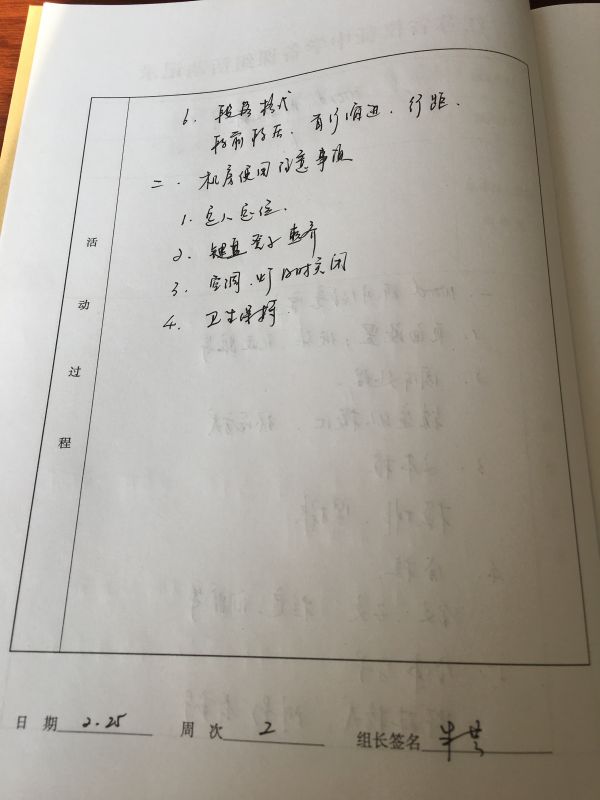 6. 段落格式
段前段后、首行缩进、行距.
二. 机房使用注意事项
1. 定人定位.
2. 键盘 凳子 整齐
3. 空调、灯及时关闭
4. 卫生保持.
活动过程
日 期 2.25 周 次 2 组长签名